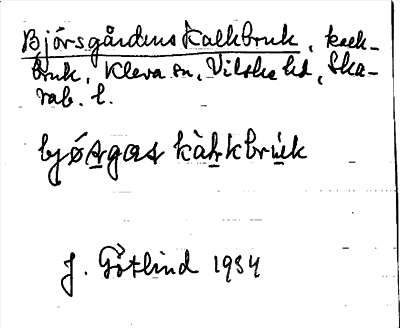 Björsgårdens Kalkbruk, kalk-
bruk, Kleva sn, Vilske hd, Ska-
rab. l.
bjǿꞦgas kàlkbrúk
J. Götlind 1934